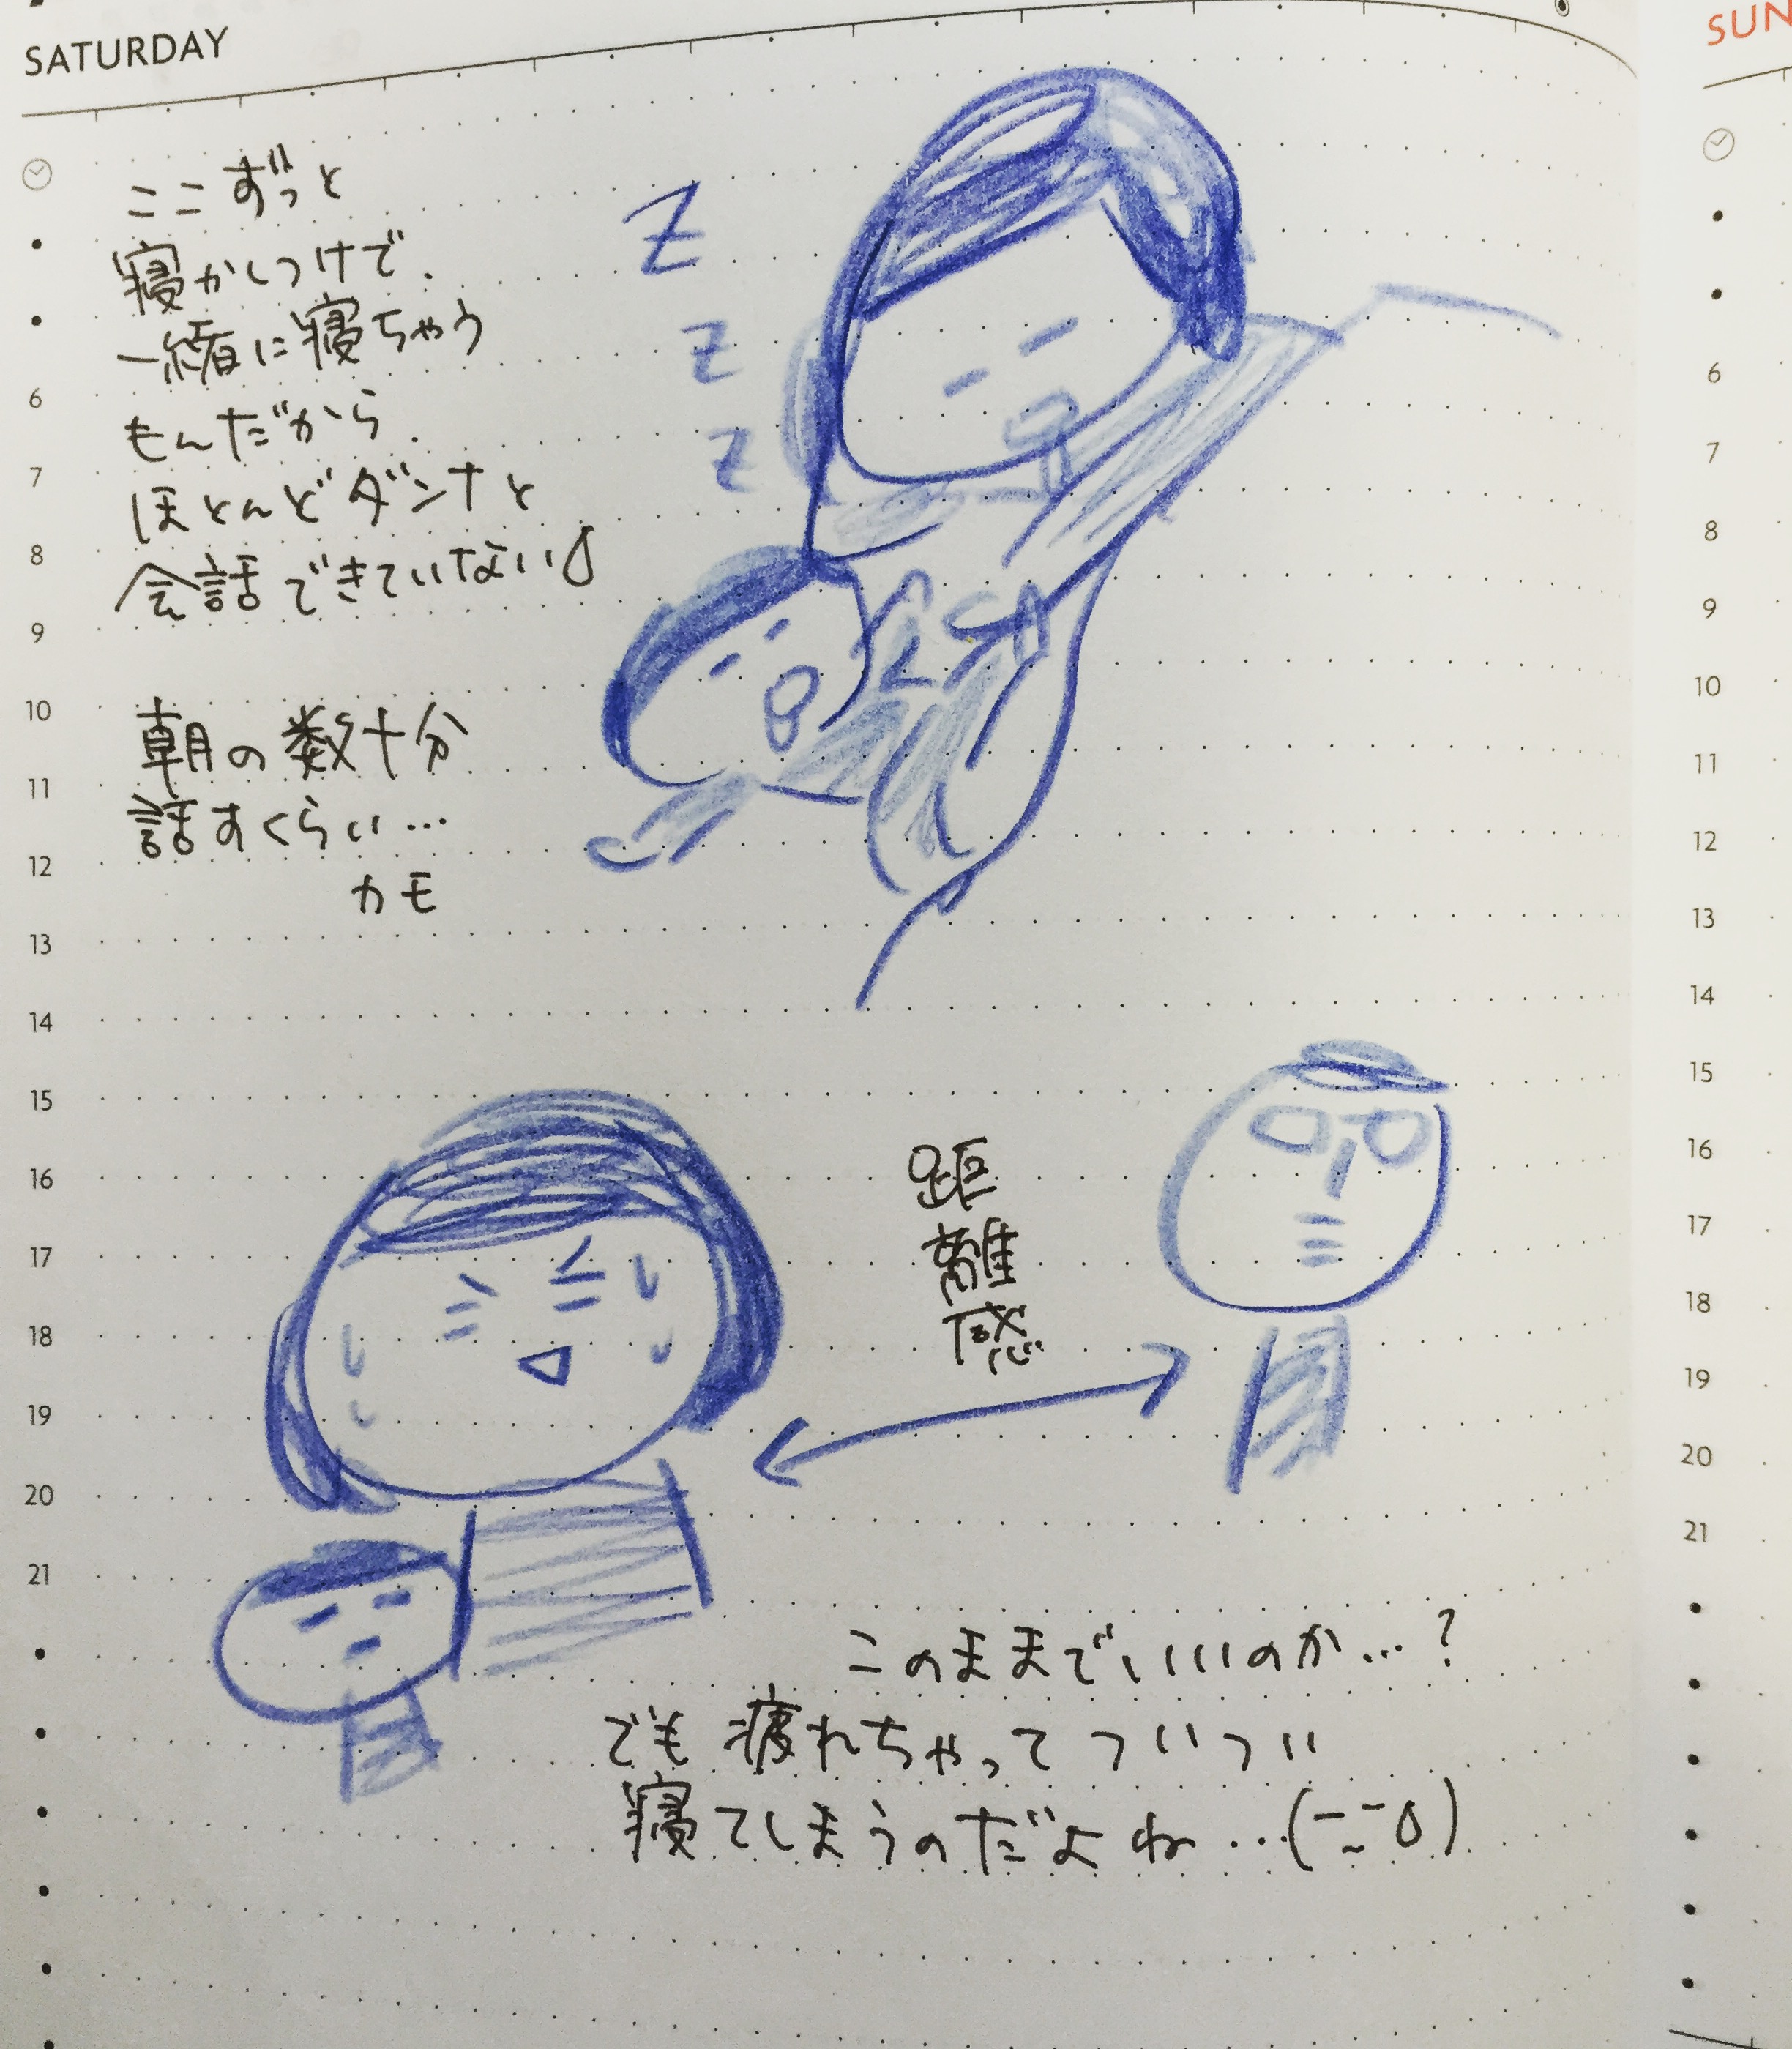 SATURDAY
SUN
ここずっと
寝かしつけで、
一緒に寝ちゃう
もんだから、
ほとんどダンナと
会話できていない
朝の数十分
話すくらい…
カモ
Z
Z
Z
距
離
感
このままでいいのか…?
でも疲れちゃってついつい
寝てしまうのだよね…
6
7
8
9
10
11
12
13
14
15
16
17
18
19
20
21
6
7
8
9
10
11
12
13
14
15
16
17
18
19
20
21